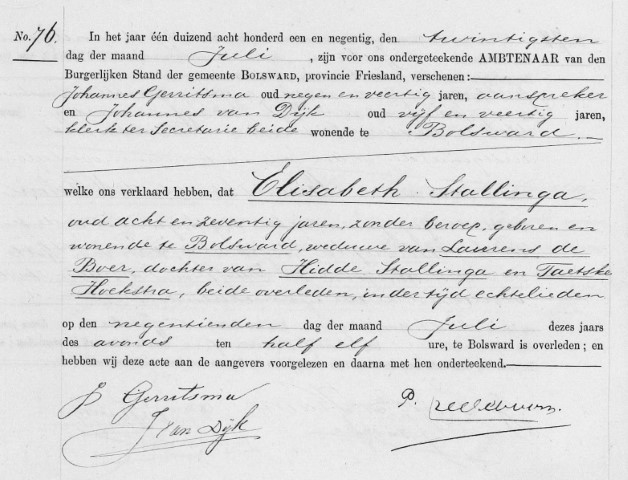 No. 76. In het jaar één duizend acht honderd een en negentig, den twintigsten
dag der maand Juli, zijn voor ons ondergeteekende AMBTENAAR van den
Burgerlijken Stand der gemeente BOLSWARD, provincie Friesland, verschenen:
Johannes Gerritsma oud negen en veertig jaren, aanspreker
en Johannes van Dijk oud vijf en veertig jaren,
klerk ter Secretarie beide wonende te Bolsward.
welke ons verklaard hebben, dat Elisabeth Stallinga,
oud acht en zeventig jaren, zonder beroep, geboren en
wonende te Bolsward, weduwe van Laurens de
Boer, dochter van Hidde Stallinga en Taetske
Hoekstra, beide overleden, in der tijd echtelieden
op den negentienden dag der maand Juli dezes jaars
des avonds ten half elf ure, te Bolsward is overleden; en
hebben wij deze acte aan de aangevers voorgelezen en daarna met hen onderteekend.
J Gerritsma P.
J van Dijk